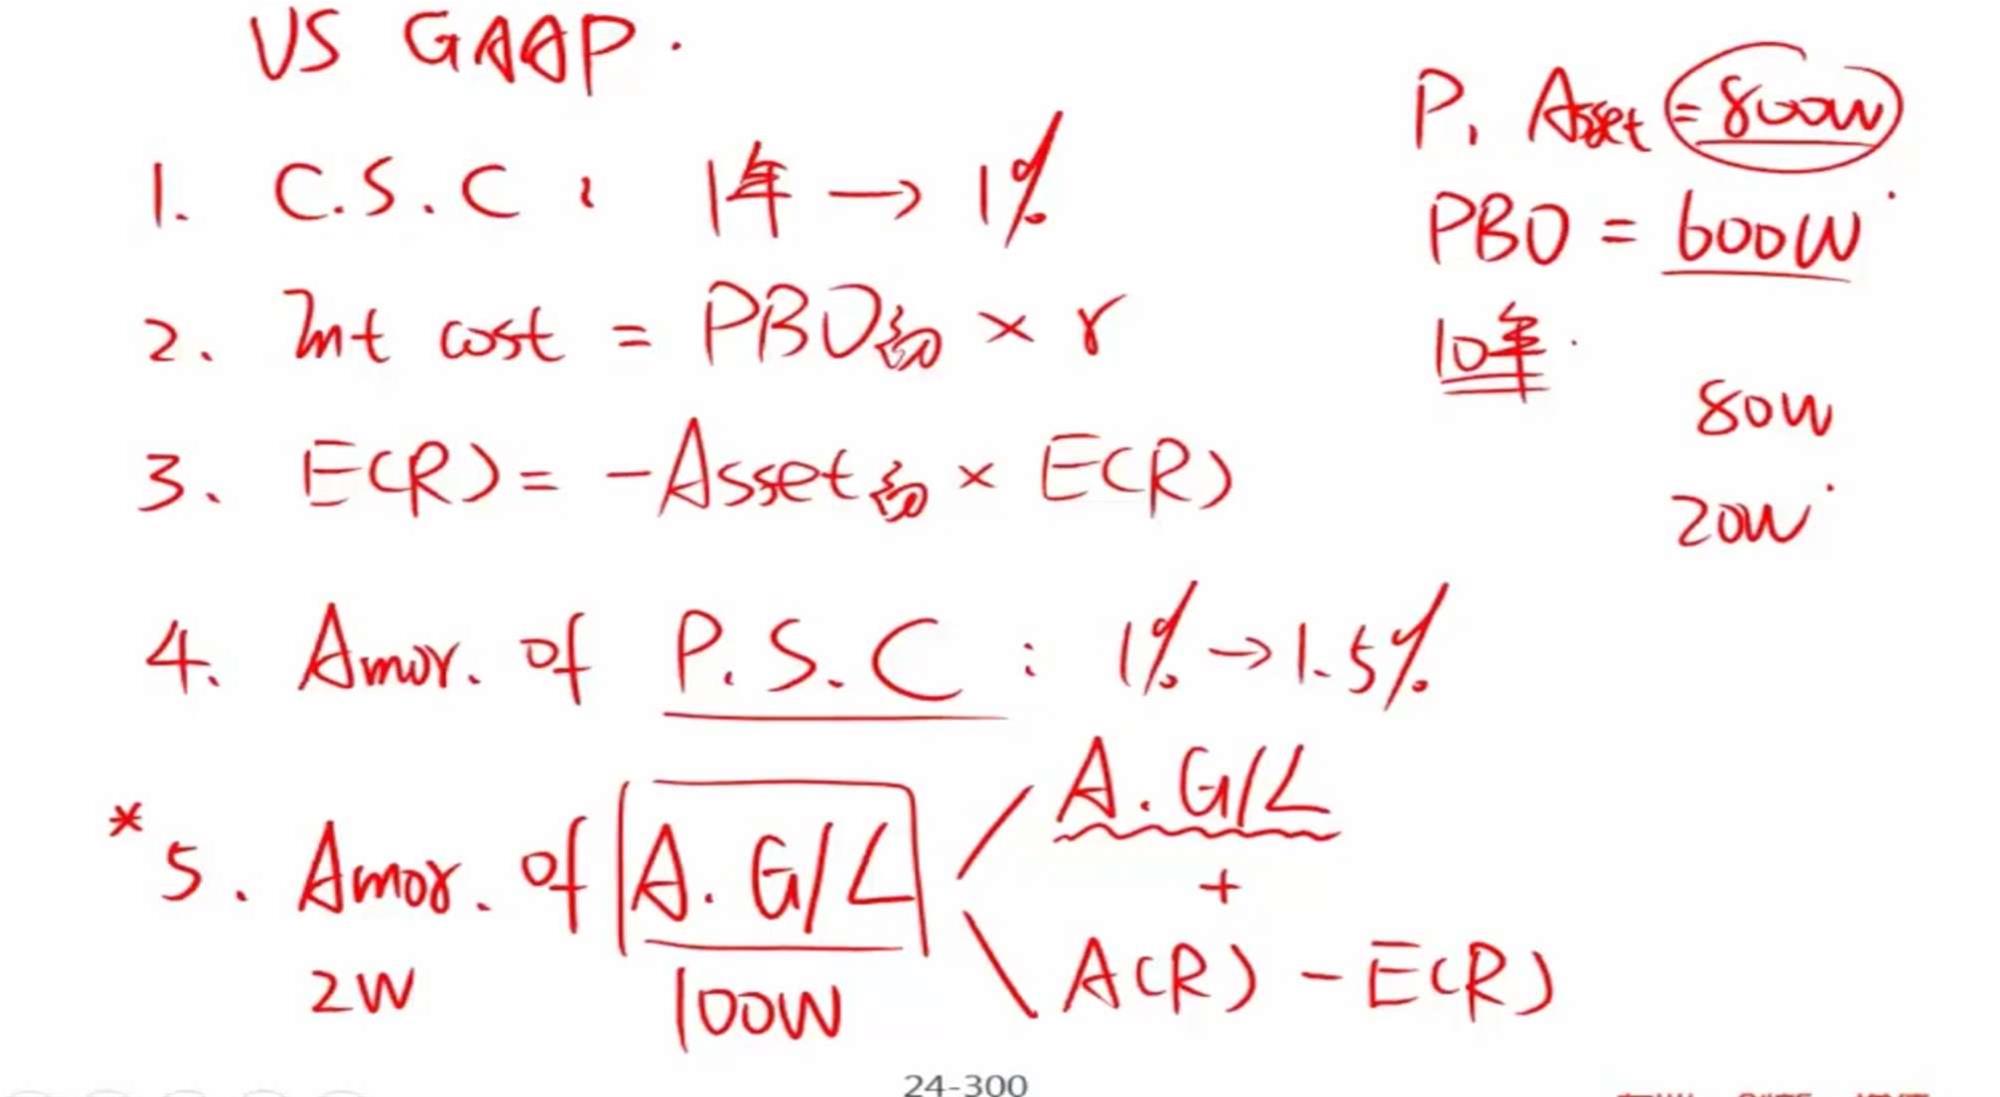 US GAAP.
1. C.S.C: 1年 → 1%
2. Int cost = PBO初 × r
3. E(R) = -Asset初 × E(R)
4. Amor. of P.S.C: 1% → 1.5%
* 5. Amor. of A. G/L
2W
100W
A. G/L
+
A(R) - E(R)
P. Asset = 800W
PBO = 600W
10年.
80W
20W
24-300